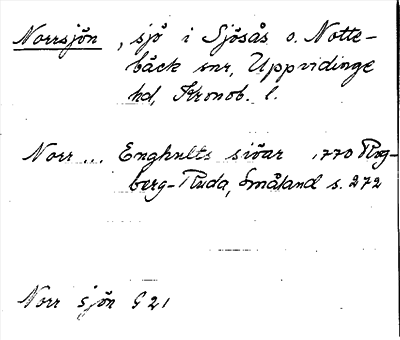 Norrsjön, sjö i Sjösås o. Notte-
bäck snr, Uppvidinge
hd, Kronob. l.
Norr... Enghults siöar 1770 Rog-
berg-Ruda, Småland s. 272
Norr sjön G 21